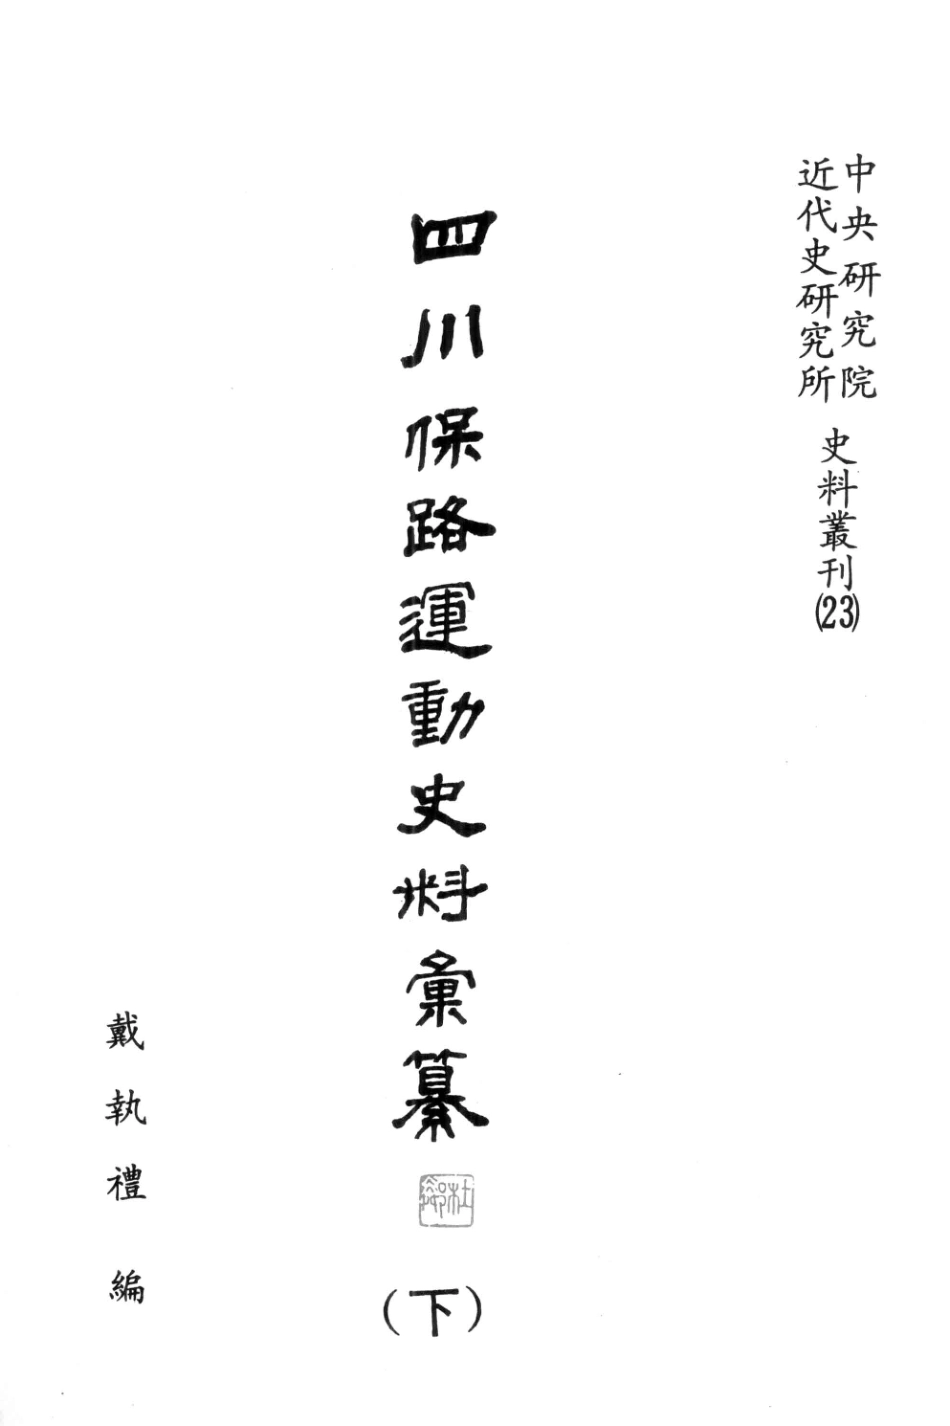 中央研究院
近代史研究所
史料叢刊(23)
四川保路運動史料彙纂
(下)
戴執禮編